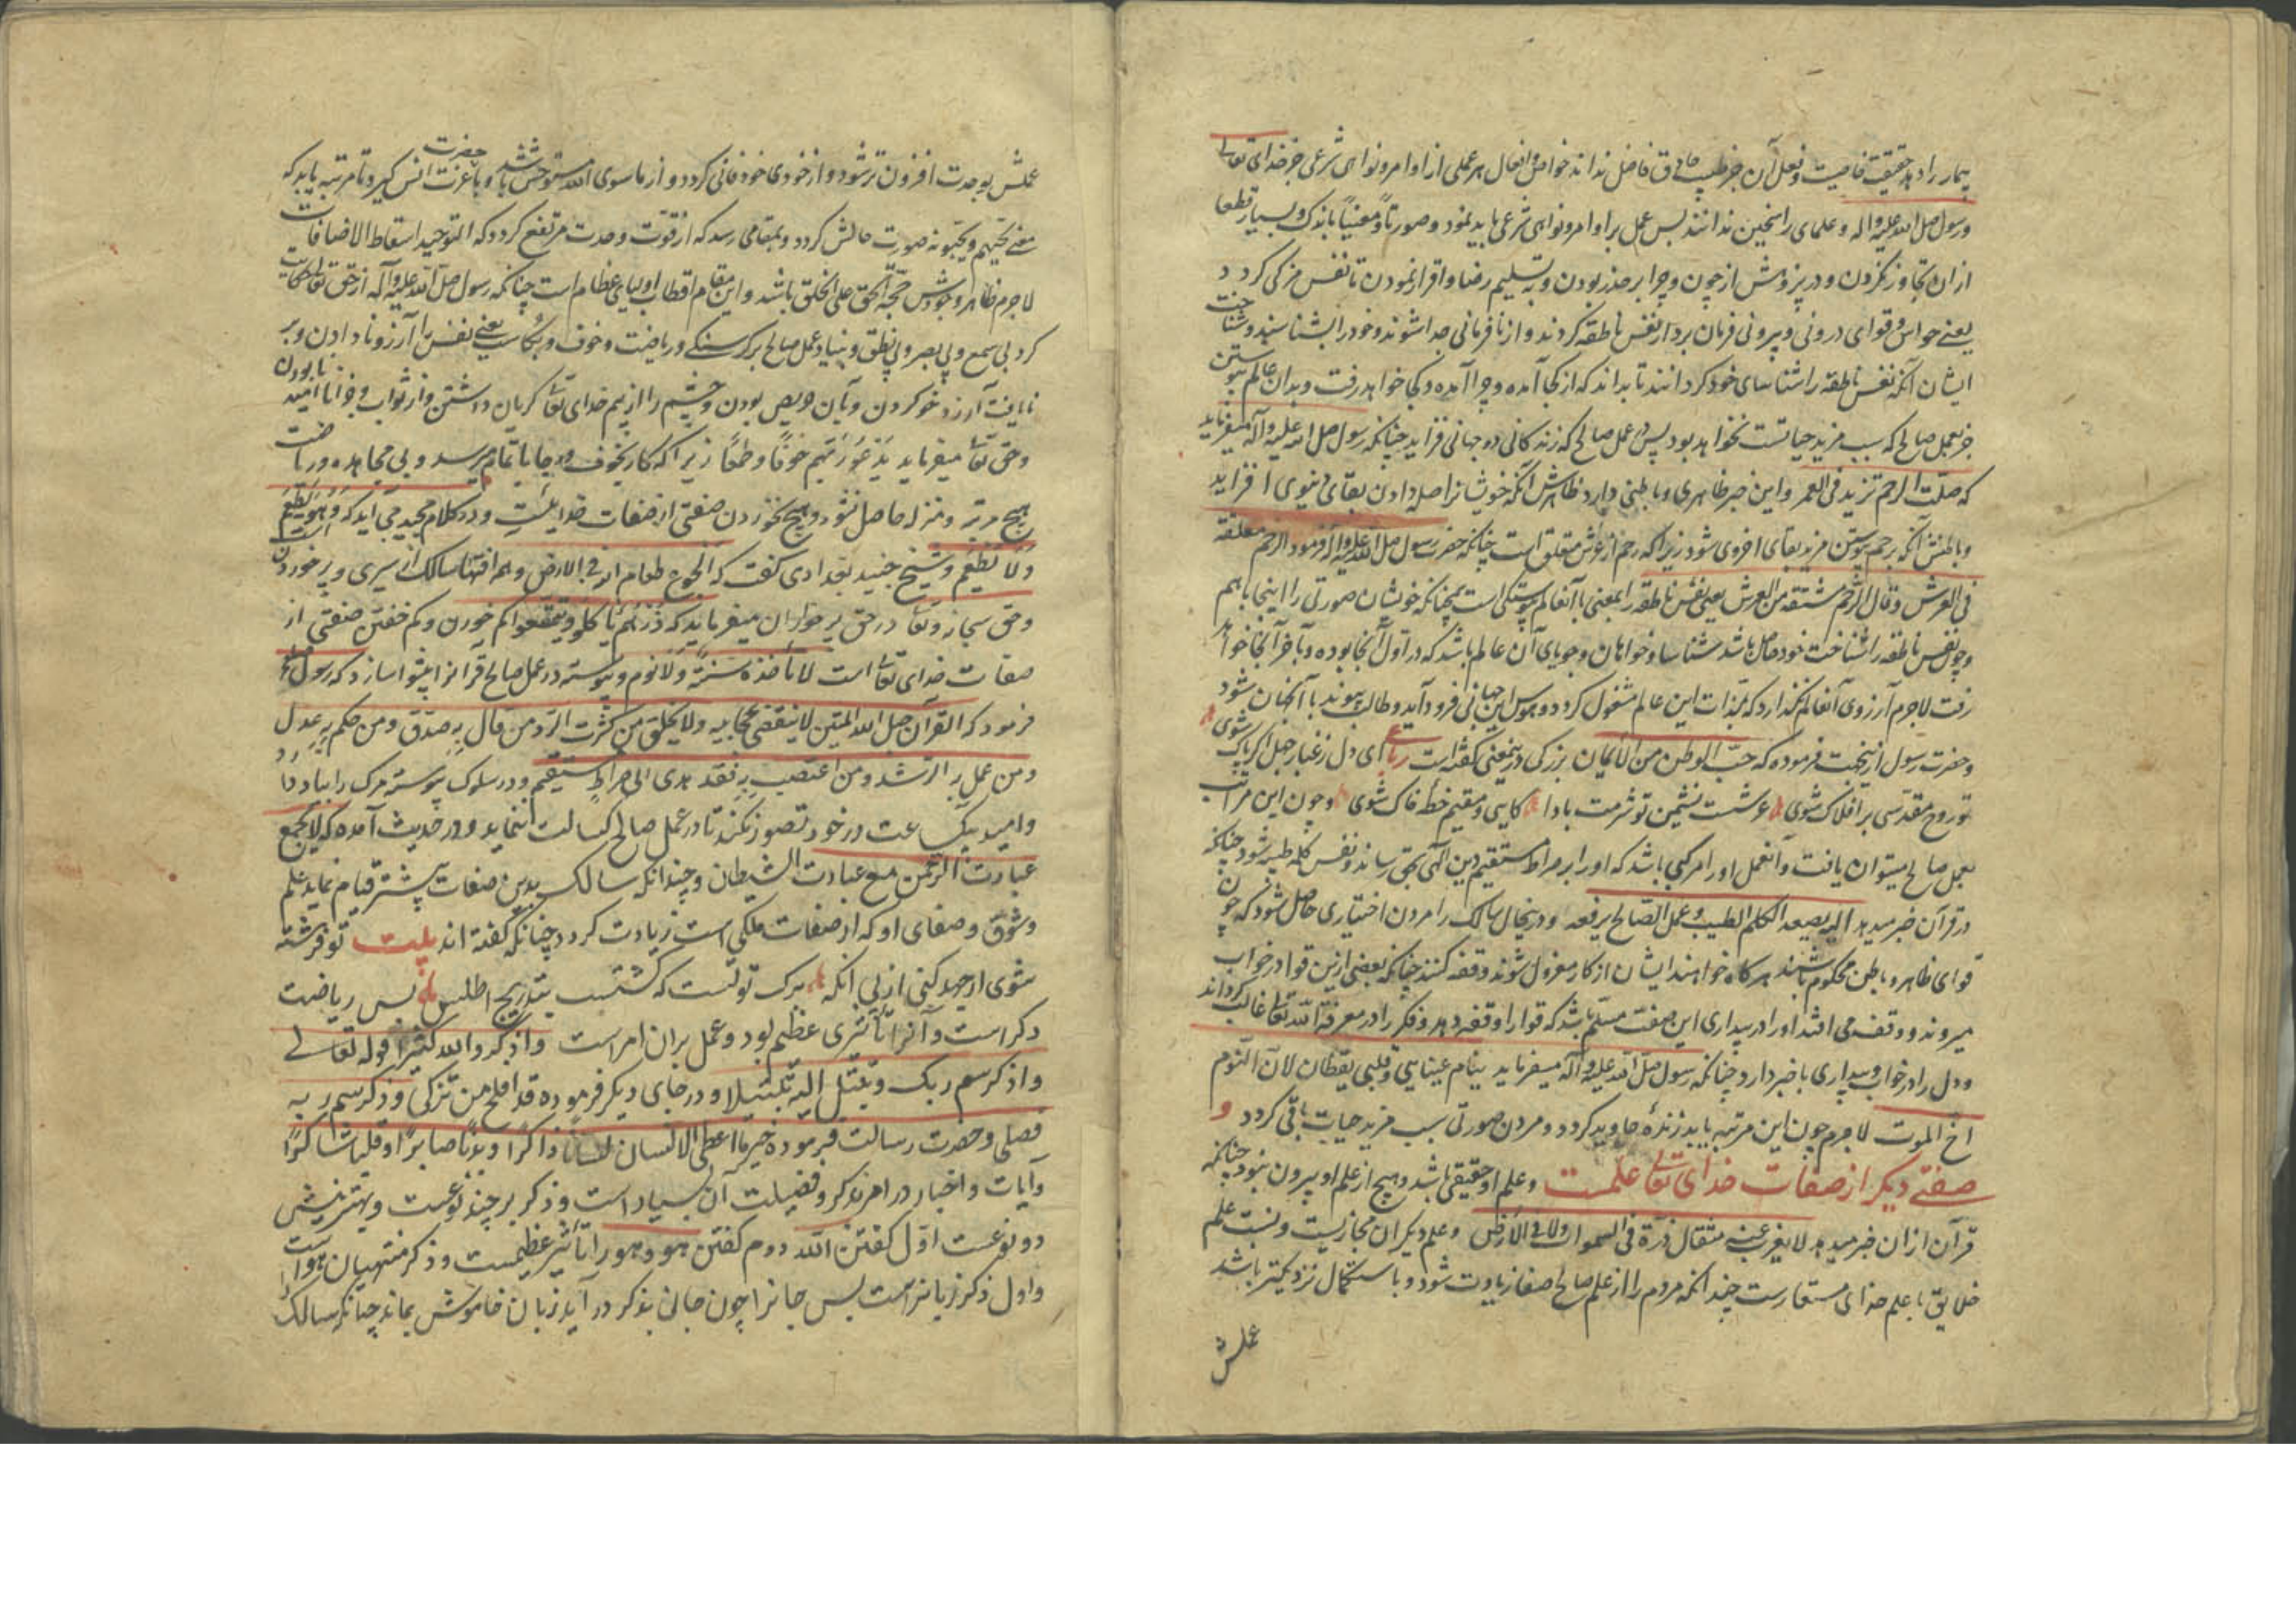 بیمار را دهد حقیقت خاصیت و فعل آن جز طبیب حاذق فاضل نداند خواص و افعال هر عملی از اوامر و نواهی شرعی جز خدای تعالی
و رسول صلی الله علیه و اله و علمای راسخین ندانند پس عمل بر اوامر و نواهی شرعی باید نمود و صورتاً و معنیاً باندک و بسیار قطعا
از ان تجاوز نکردن و در پژوهش از چون و چرا بر حذر بودن و به تسلیم رضا و اقرار نمودن تا نفس مزکی کردد
یعنی حواس و قوای درونی و بیرونی فرمان بردار نفس ناطقه کردند و از نافرمانی جدا شوند و خود را بشناسند و شناخت
ایشان آنکه نفس ناطقه را شناسای خود کردانند تا بداند که از کجا آمده و چرا آمده و کجا خواهد رفت و بدان عالم پیوستن
جز بعمل صالح که سبب مزید حیاتست نخواهد بود پس عمل صالح که زندکانی دو جهانی فزاید چنانکه رسول صلی الله علیه و آله میفرماید
که صلت الرحم تزید فی العمر و این خبر ظاهری و باطنی دارد ظاهرش آنکه خویشانرا صله دادن بقای دنیوی افزاید
و باطنش آنکه برحم پیوستن مزید بقای اخروی شود زیرا که رحم از عرش متعلق است چنانکه حضرت رسول صلی الله علیه و اله فرمود الرحم معلقة
فی العرش و قال الرحم مشتقه من العرش یعنی نفس ناطقه را بمعنی با آنعالم پیوستکی است همچنانکه خویشان صورتی را اینجا با هم
و چون نفس ناطقه را شناخت خود حاصل باشد شناسا و خواهان و جویای آن عالم باشد که در اول آنجا بوده و بآخر آنجا خواهد
رفت لاجرم آرزوی آنعالم نگذارد که بلذات این عالم مشغول کردد و بهوس این جهانی فرود آید و طالب پیوند با آنجهان شود
و حضرت رسول ازینجهت فرموده که حب الوطن من الایمان بزرکی درینمعنی کفته است رباعی ای دل ز غبار جهل اکر پاک شوی
تو روح مقدسی بر افلاک شوی عرشست نشیمن تو شرمت بادا کایی و مقیم خطهٔ خاک شوی و چون این مراتب
بعمل صالح میتوان یافت و آنعمل او را مرکبی باشد که او را بر صراط مستقیم دین الهی بحق رساند و نفس کلمه طیبه شود چنانکه
در قرآن خبر میدهد الیه یصعد الکلم الطیب و عمل الصالح یرفعه و درینحال سالک را مردن اختیاری حاصل شود که چون
قوای ظاهر و باطن محکوم باشند هرکاه خواهند ایشان از کار معزول شوند و وقفه کنند چنانکه بعضی ازین قوا در خواب
میروند و وقفه می افتد او را در بیداری این صفت مسلم باشد که قوا را وقفه دهد و فکر را در معرفة الله تعالی غالب کرداند
و دل را در خواب و بیداری با خبر دارد چنانکه رسول صلی الله علیه و آله میفرماید ینام عینایی و قلبی یقظان لان النوم
اخ الموت لاجرم چون این مرتبه یابد زندهٔ جاوید کردد و مردن صورتی سبب مزید حیات باقی کردد و
صفتی دیکر از صفات خدای تعالی علمست و علم او حقیقی باشد و هیچ از علم او بیرون نبود چنانکه
قرآن از ان خبر میدهد لا یغرب عنه مثقال ذرة فی السموات ولا فی الارض و علم دیکران مجازیست و نسبت علم
خلایق با علم خدای مستعارست چندانکه مردم را از علم صالح صفا زیادت شود و باستکمال نزدیکتر باشد
عملش
عملش بوحدت افزون تر شود و از خودی خود فانی کردد و از ماسوی الله مستوحش باشد و با حضرت عزت انس کیرد تا مرتبه یابد که
معنی یحبهم و یحبونه صورت حالش کردد و بمقامی رسد که از قوت وحدت مرتفع کردد که التوحید اسقاط الاضافات
لاجرم ظاهر وجودش حجة الحق علی الخلق باشد و این مقام اقطاب اولیای عظام است چنانکه رسول صلی الله علیه و آله از حق تعالی حکایت
کرد بی یسمع و بی یبصر و بی ینطق و بنیاد عمل صالح بر کرسنکی و ریاضت و خوف و بکاست یعنی نفس را آرزو نادادن و بر
نایافت آرزو خو کردن و بآن حریص نابودن و چشم را از بیم خدای تعالی کریان داشتن و از ثواب و جزا نا امید
و حق تعالی میفرماید یدعون ربهم خوفاً و طمعاً زیرا که کار بخوف و رجا باتمام میرسد و بی مجاهده و ریاضت
هیچ مرتبه و منزله حاصل نشود و هیچ نخوردن صفتی از صفات خدایست و در کلام مجید می آید که و هو یطعم
و لا یطعم و شیخ جنید بغدادی کفت که الجوع طعام الله فی الارض و هم افتها سالک را از سیری و پر خوردن است
و حق سبحانه و تعالی در حق پر خواران میفرماید که ذرهم یاکلو و یتمتعوا کم خوردن و کم خفتن صفتی از
صفات خدای تعالی است لا تاخذه سنة و لا نوم و پیوسته در عمل صالح قرآنرا پیشوا سازد که رسول صلعم
فرمود که القرآن حبل الله المتین لا ینقضی عجایبه ولا یخلق من کثرت الرد من قال به صدق ومن حکم به عدل
ومن عمل به الرشد ومن اعتصب به فقد هدی الی صراط مستقیم و در سلوک پیوسته مرک را بیاد دارد
و امید یکساعت در خود تصور نکند تا در عمل صالح کسالت ننماید و در حدیث آمده که لا یجمع
عبادت الرحمن مع عبادت الشیطان و چندانکه سالک بدین صفات بیشتر قیام نماید علم
و شوق و صفای او که از صفات ملکی است زیادت کردد چنانکه کفته اند بیت تو فرشته
شوی ار جهد کنی از پی انکه برک توتست که کشتست بتدریج اطلس پس ریاضت
ذکر است و آنرا تأثیری عظیم بود و عمل بران امر است واذکرو الله کثیرا قوله تعالی
واذکر سم ربک و تبتل الیه تبتیلا و در جای دیکر فرموده قد افلح من تزکی وذکر سم ربه
فصلی و حضرت رسالت فرموده خیر ما اعطی الانسان لساناً ذاکراً و بدناً صابراً و قلباً شاکراً
و آیات و اخبار در امر بذکر و فضیلت آن بسیار است و ذکر بر چند نوعست و بهترینش
دو نوعست اول کفتن الله دوم کفتن هو و هو را تأثیر عظیمست و ذکر منتهیان هواست
و اول ذکر زبانراست پس جانرا چون جان بذکر در آید زبان خاموش بماند چنانکه سالک را